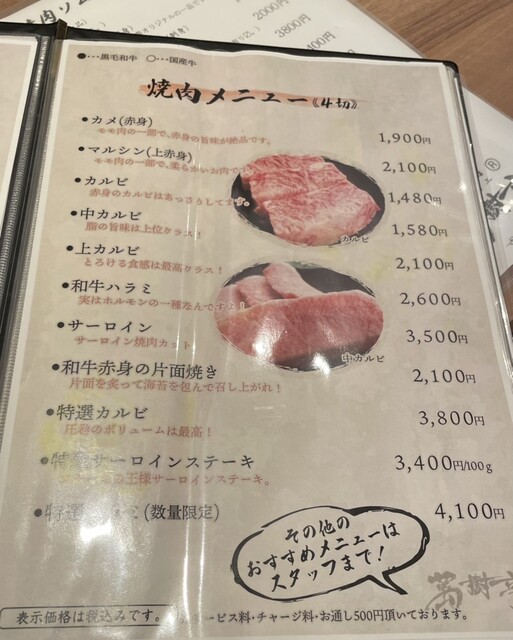 2000円
3800円
400円
●…黒毛和牛 ○…国産牛
焼肉メニュー《4切》
●カメ(赤身)
モモ肉の一部で、赤身の旨味が絶品です。
1,900円
●マルシン(上赤身)
モモ肉の一部で、柔らかいお肉で
2,100円
●カルビ
赤身のカルビはあっさりしてます。
1,480円
カルビ
●中カルビ
脂の旨味は上位クラス!
1,580円
●上カルビ
とろける食感は最高クラス!
2,100円
●和牛ハラミ
実はホルモンの一種なんですよ!
2,600円
●サーロイン
サーロイン焼肉カット
3,500円
中カルビ
●和牛赤身の片面焼き
片面を炙って海苔を包んで召し上がれ!
2,100円
●特選カルビ
圧巻のボリュームは最高!
3,800円
●特選サーロインステーキ
の王様サーロインステーキ。
3,400円/100g
●特選 (数量限定)
4,100円
その他の
おすすめメニューは
スタッフまで!
表示価格は税込みです。 ービス料・チャージ料・お通し500円頂いております。